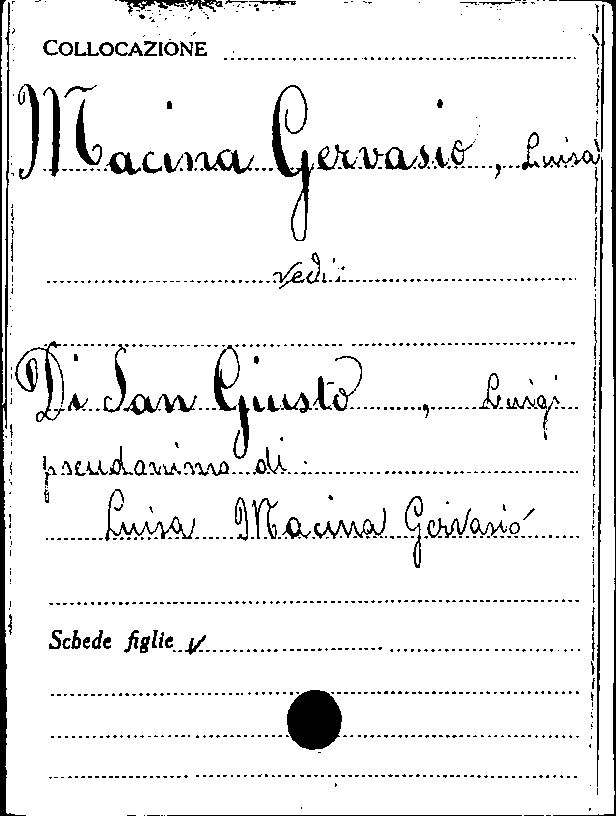 COLLOCAZIONE
Macina Gervasio, Luisa
vedi:
Di San Giusto, Luigi
pseudonimo di:
Luisa Macina Gervasio
Schede figlie V